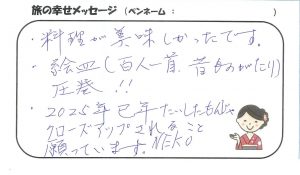 旅の幸せメッセージ（ペンネーム：　　　　　）
・料理が美味しかったです。
・絵皿（百人一首、昔ものがたり）
圧巻!!
・2025年巳年たいしたもんじゃ
クローズアップされること
願っています。NEKO